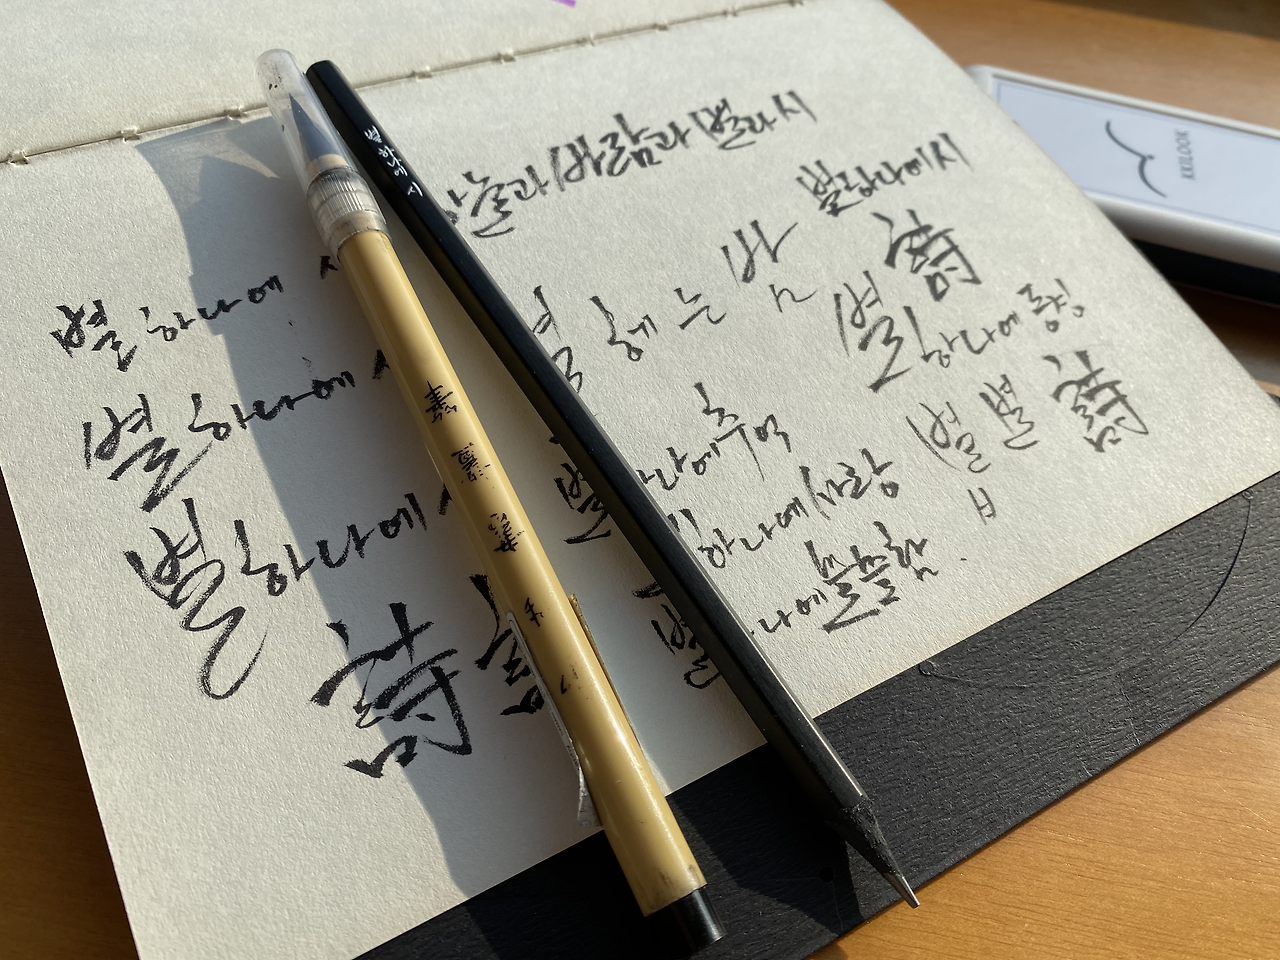 하늘과 바람과 별과 시
별 하나에 시
詩
별 헤는 밤
별 하나에 동경
별 별 詩
ㅂ
하나에 추억
하나에 사랑
나에 쓸쓸함
별
별
별 하나에 시
별 하나에
별 하나에
詩
별하나에 시
KKILOOK